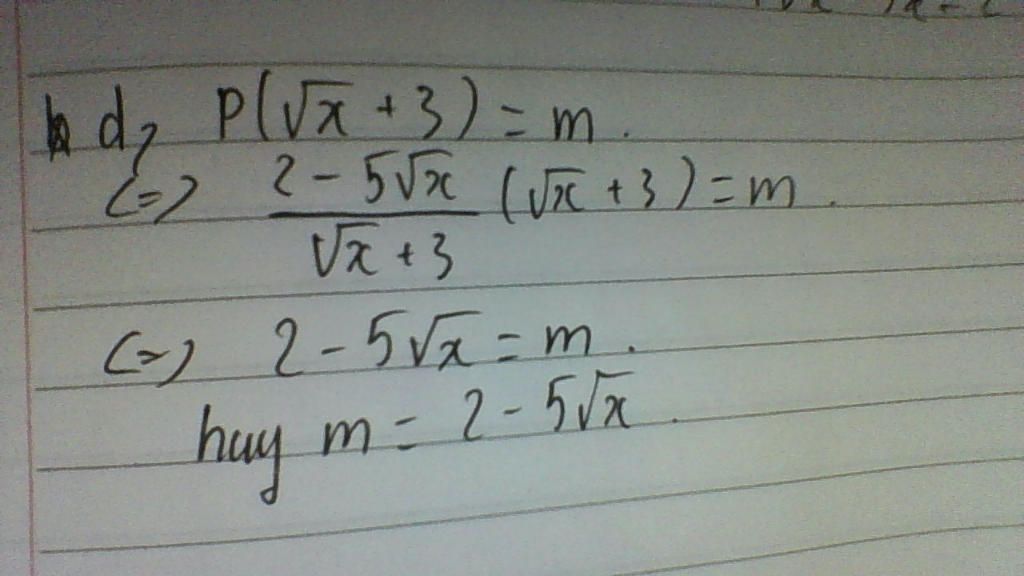 d, P(√x + 3) = m.
<=> (2 - 5√x)/(√x + 3) (√x + 3) = m.
<=> 2 - 5√x = m.
hay m = 2 - 5√x.